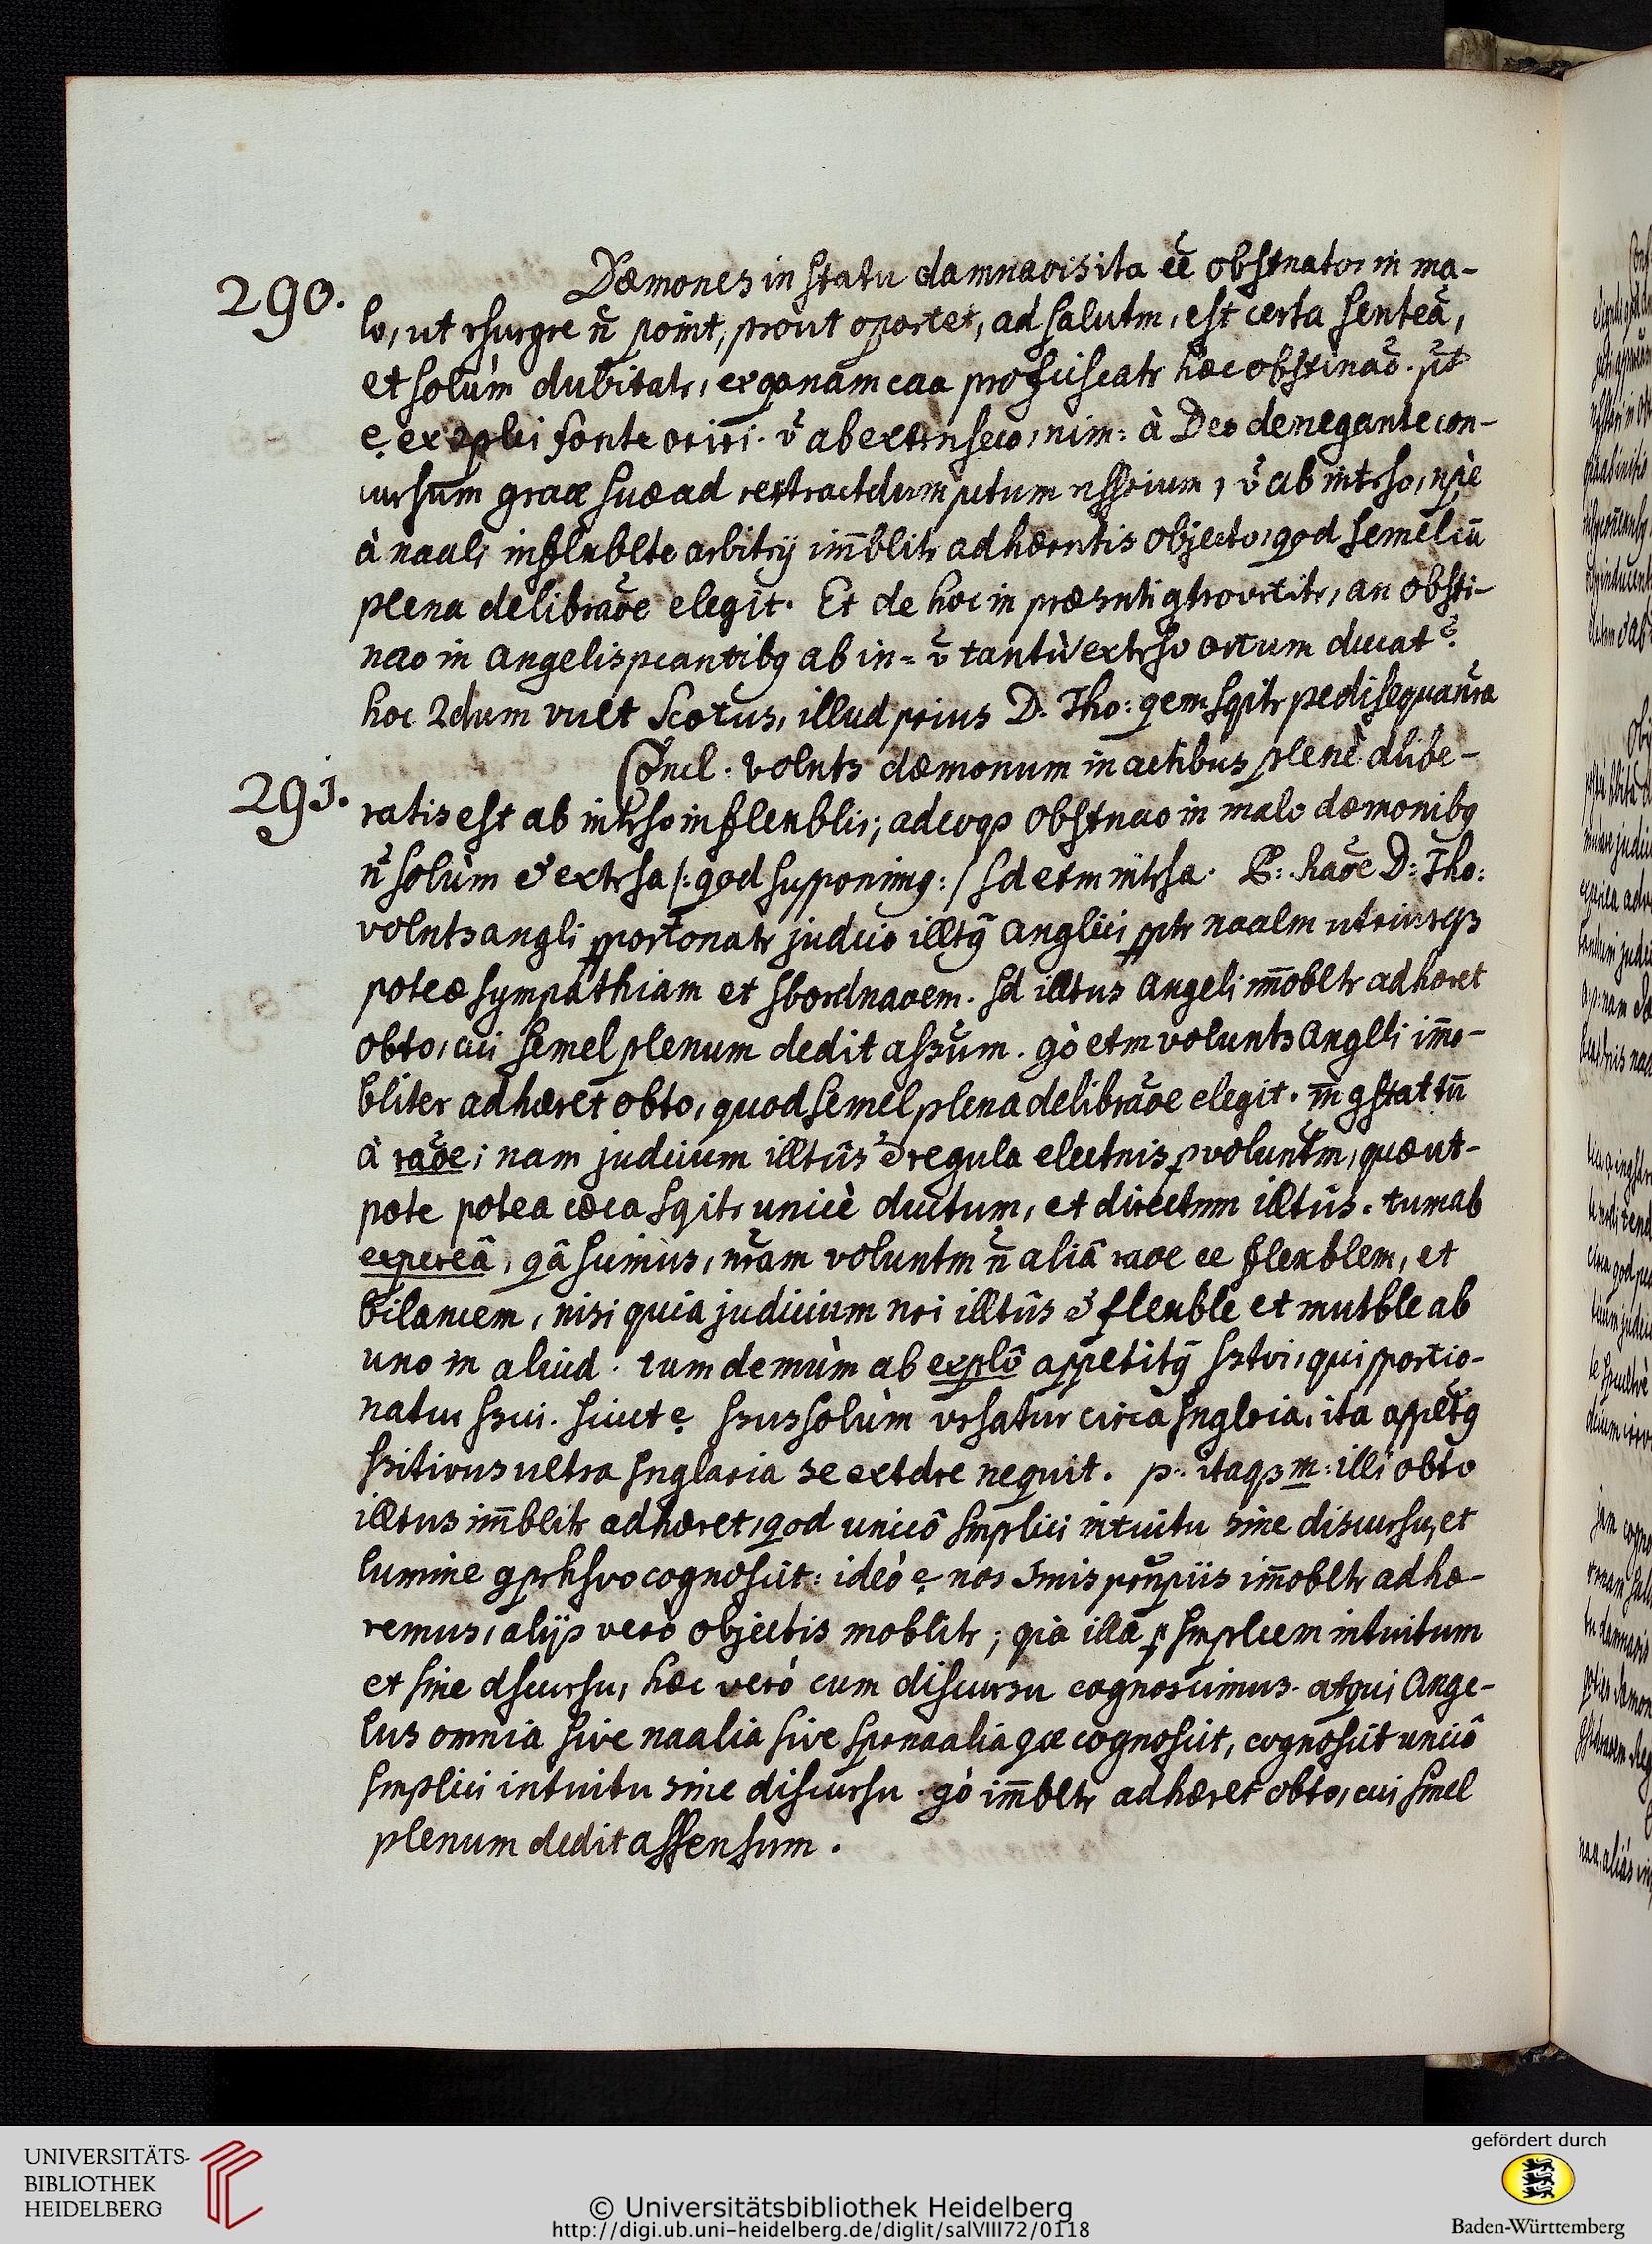 290.
Dæmones in statu damnaois ita eê obstnatos in ma-
lo, ut rsurgre ñ point, prout oportet, ad salutm, est certa senteâ,
et solùm dubitatr, ex qanam caa proficiscatr hæc obstinaô. pt
ę ex dplici fonte oriri. v̂ ab extrnseco, nim: à Deo denegante con-
cursum graæ suæ ad retractdum pctum nssrium, v̂ ab intrso, npè
à naali inflxblte arbitrij im̄blitr adhærntis objecto, qod semel cū
plena delibraôe elegit. Et de hoc in præsnti gtrovrtitr, an obsti-
nao in angelis pcantibg ab in= v̂ tantù extrso ortum ducat?
hoc 2dum vult Scotus, illud prius D. Tho: qem sqitr pedisequa nra
291.
Concl. volnts dæmonum in actibus plenè dlibe-
ratis est ab intrso inflexblis; adeoqs obstnao in malo dæmonibg
ñ solùm ê extrsa /: qod supponimg: / sd etm intrsa. P: haôe D: Tho:
volnts angli pportonatr judcio illtg anglici pptr naalm utriusqs
poteæ sympathiam et sbordnaoem. sd illtus angeli im̄obltr adhæret
obto, cui semel plenum dedit asz̄um. gò etm volunts anglli im̄o-
bliter adhæret obto, quod semel plena delibraôe elegit. m̄ gstat tū
à raôe; nam judicium illtûs ê regula electnis p voluntm, quæ ut-
pote potea cæca sqitr unicè ductum, et directnm illtûs. tum ab
expereâ, qâ scimus, nr̄am voluntm ñ aliâ raoe ee flexblem, et
bilancem, nisi quia judicium nri illtûs ê flexble et mutble ab
uno in aliud. tum demùm ab explô appetitg sztvi, qui pportio-
natur szui. sicut ę szus solùm vrsatur circa snglria, ita appettg
szitivus ultra snglaria se extdre nequit. p: itaqs m: illi obto
illtus im̄blitr adhæret, qod unicô smplici intuitu sine discursu, et
lumine gprhsvo cognoscit: ideò ę nos 1mis prnpiis im̄obltr adhæ-
remus, alijs verò objectis moblitr; qia illa p smplcem intuitum
et sine dscursu, hæc verò cum discursu cognoscimus. atqui Ange-
lus omnia sive naalia sive sprnaalia qæ cognoscit, cognoscit unicô
smplici intuitu sine discursu. gò im̄bltr adhæret obto, cui smel
plenum dedit assensum.
UNIVERSITÄTS-
BIBLIOTHEK
HEIDELBERG
© Universitätsbibliothek Heidelberg
http://digi.ub.uni-heidelberg.de/diglit/salVIII72/0118
gefördert durch
Baden-Württemberg